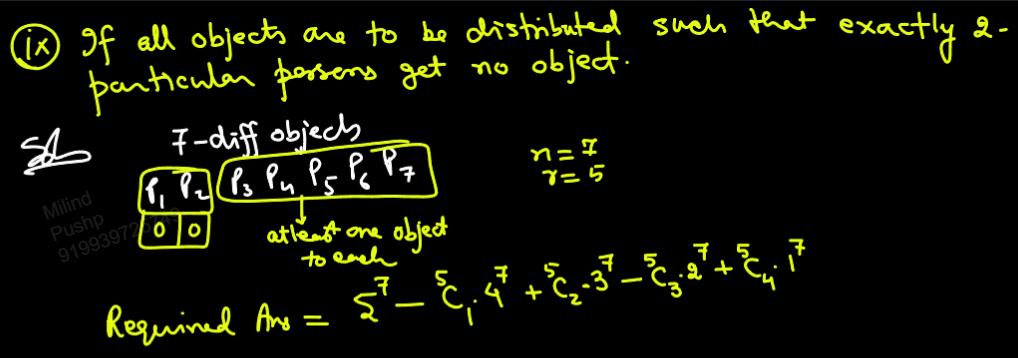 (ix) If all objects are to be distributed such that exactly 2-
particular persons get no object.
Sol
7-diff objects
P₁ P₂ P₃ P₄ P₅ P₆ P₇
0 0
n = 7
r = 5
atleast one object
to each
Milind
Pushp
Required Ans = 5⁷ - ⁵C₁.4⁷ + ⁵C₂.3⁷ - ⁵C₃.2⁷ + ⁵C₄.1⁷